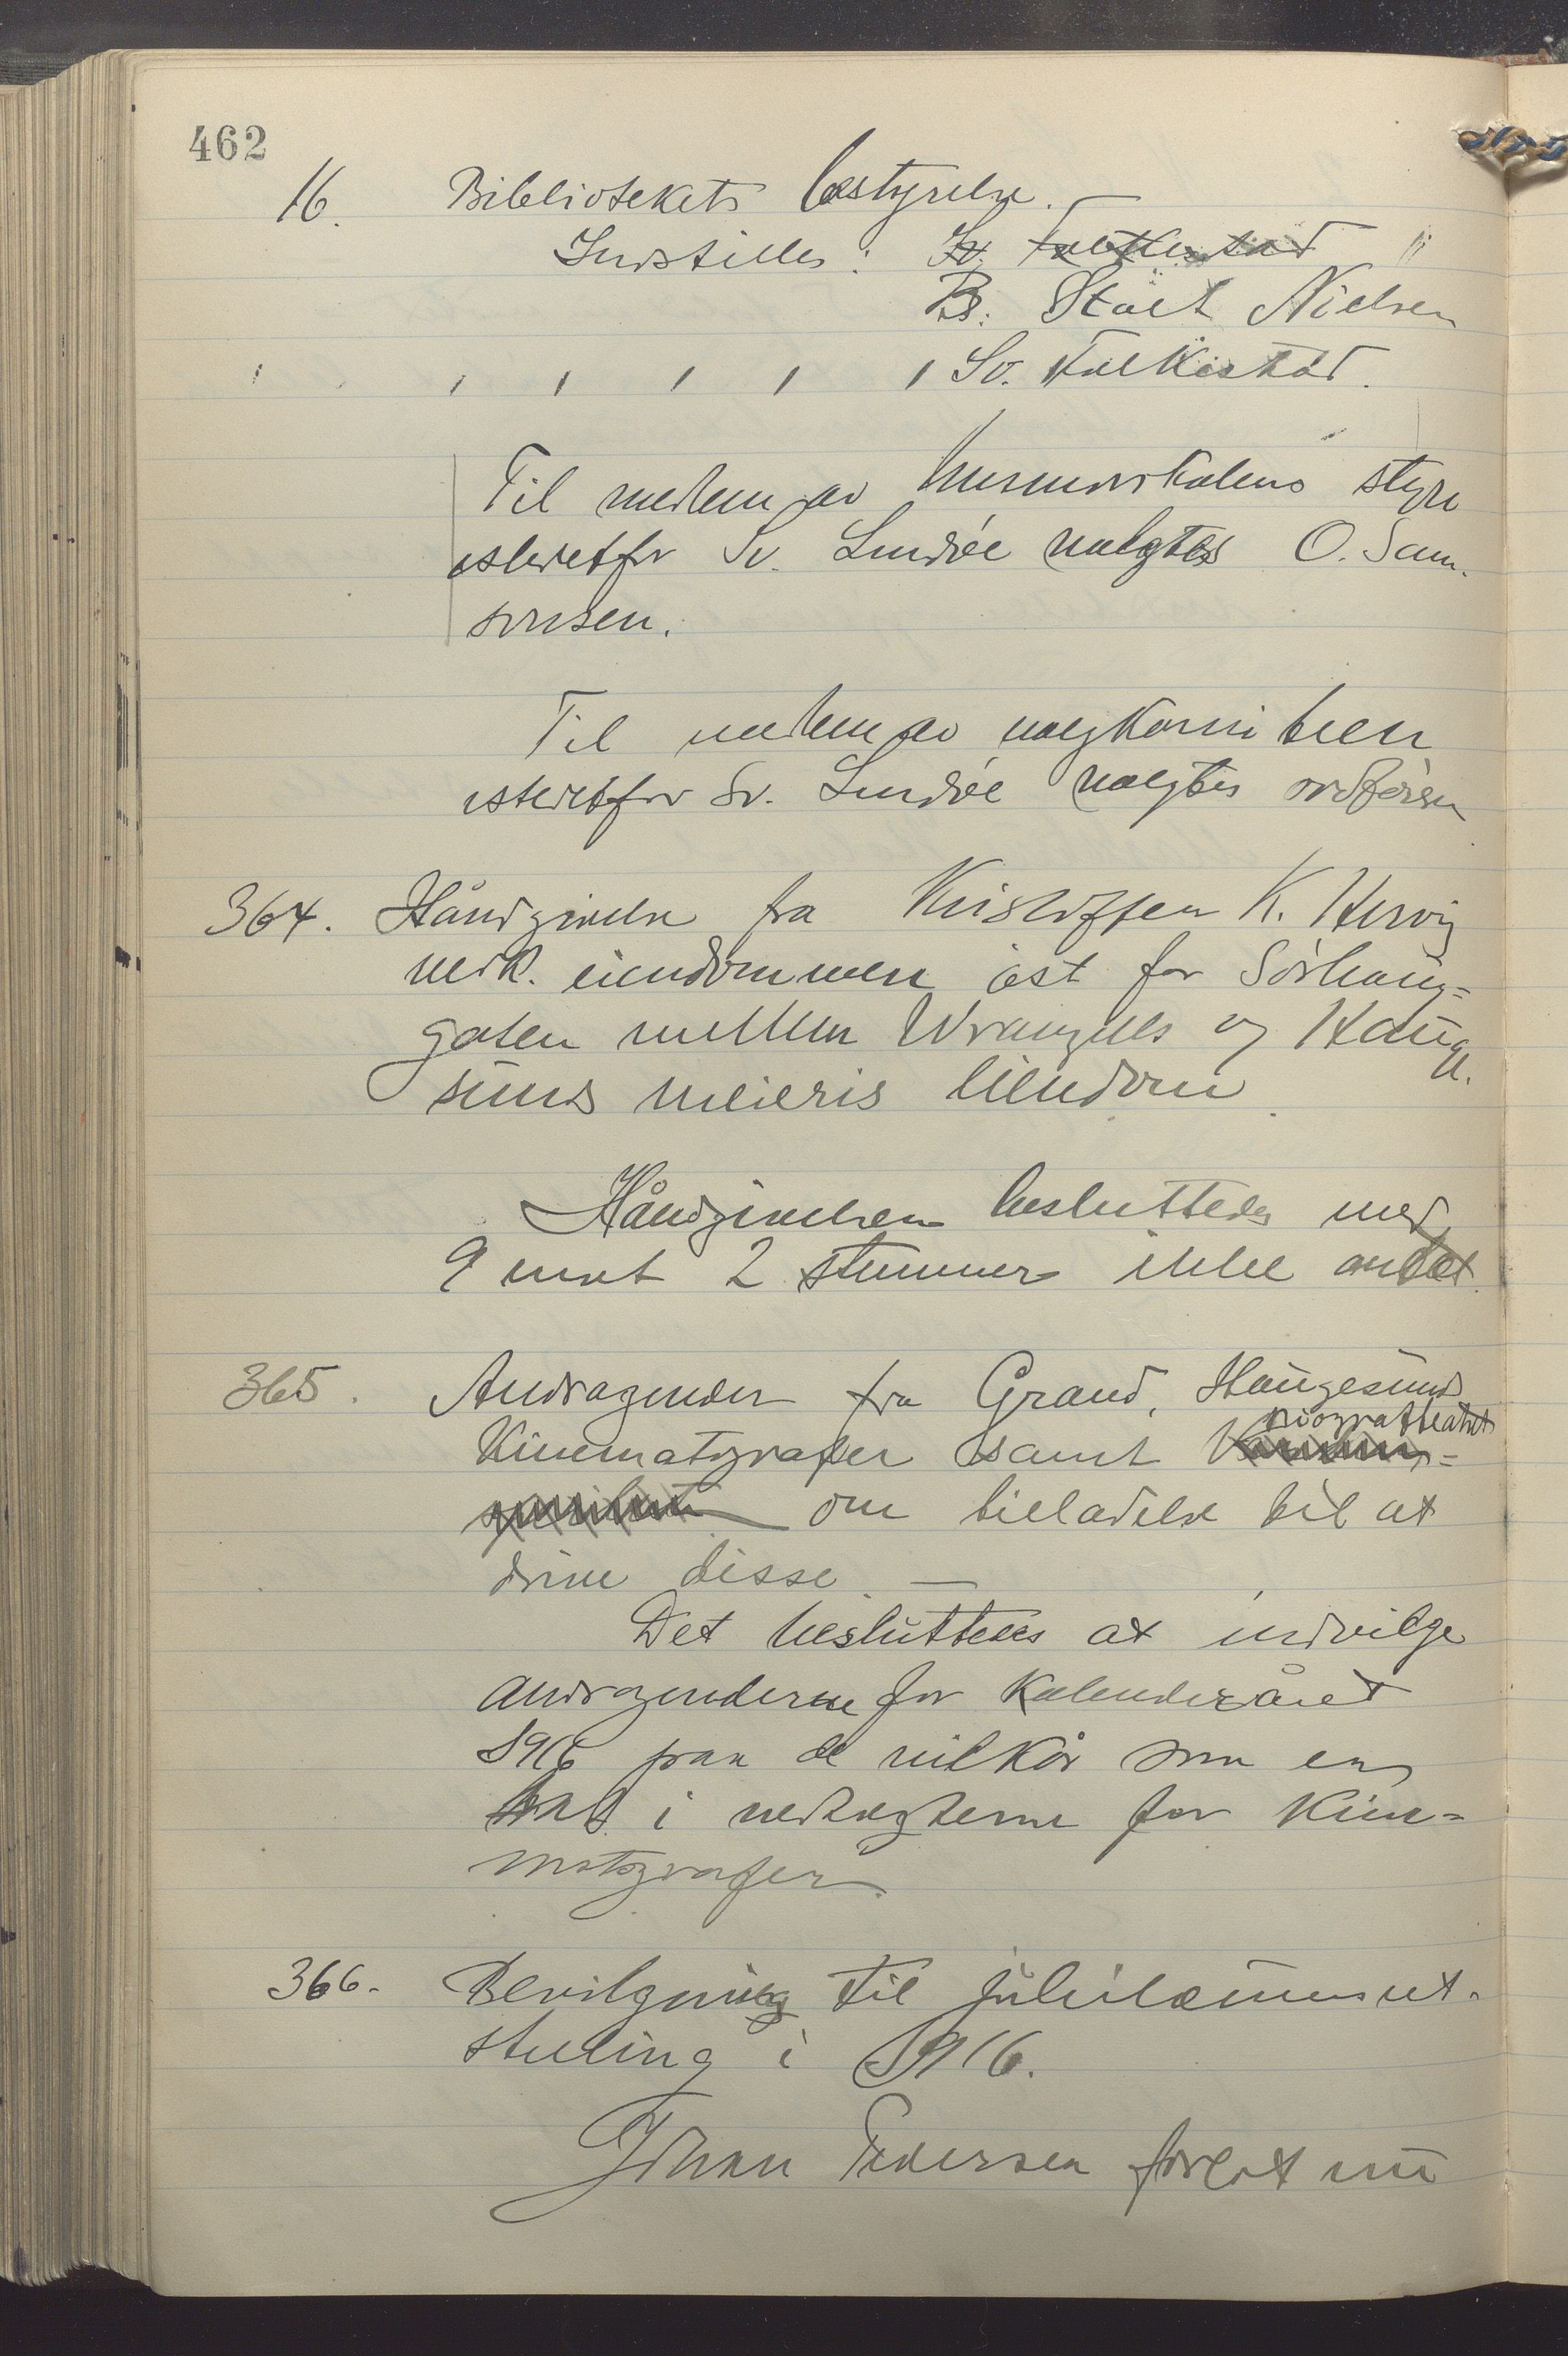 462
16. Bibliotekets bestyrelse. —
Indstilles: Sv. Falkestad "
B. Stolt Nielsen
Sv. Falkestad.
Til medlem av husmorskolens styre
istedetfor Sv. Lindøe valgtes O. Sam-
sonsen.
Til medlem av valgkomiteen
istedetfor Sv. Lindøe valgtes ordføren
364. Håndgivelse fra Kristoffer K. Hervig
vedk. eiendommen øst for Sørhaug=
gaten mellem Wrangells og Hauge
sunds meieris eiendom.
Håndgivelsen besluttedes med
9 mot 2 stemmer ikke andet.
365. Andragender fra Grand, Haugesunds
biografteatret
Kinematografer samt
om tilladelse til at
drive disse. —
Det besluttedes at indvilge
andragenderne for kalenderåret
1916 paa de vilkår som er
sat i vedtægterne for kine=
matografer.
366. Bevilgning til jubilæumsut-
stilling i 1916.
Johan Pedersen forlot nu